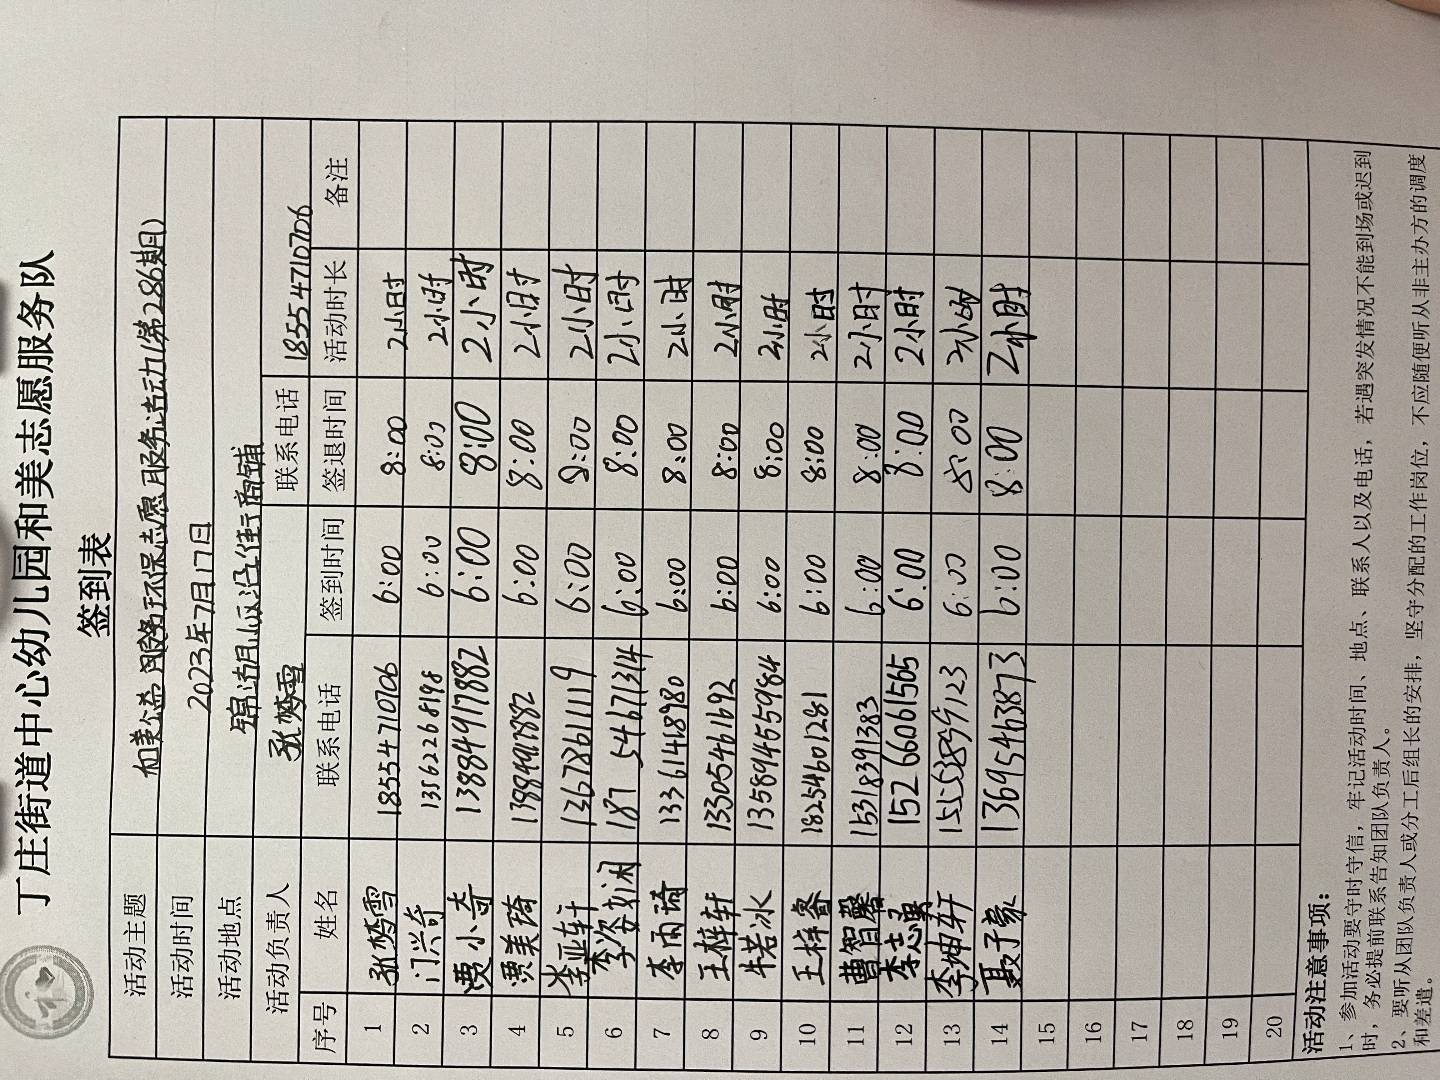 丁庄街道中心幼儿园和美志愿服务队
签到表
活动主题 和美公益 服务环保志愿服务活动(第286期)
活动时间 2023年7月17日
活动地点 锦湖小区沿街商铺
活动负责人 张梦雪 联系电话 18554710706
序号 姓名 联系电话 签到时间 签退时间 活动时长 备注
1 张梦雪 18554710706 6:00 8:00 2小时
2 门兴奇 13562268198 6:00 8:00 2小时
3 贾小奇 13884917882 6:00 8:00 2小时
4 贾美琦 13884917882 6:00 8:00 2小时
5 李亚轩 13678611119 6:00 8:00 2小时
6 李姿闲 187 54671314 6:00 8:00 2小时
7 李雨琦 13361418980 6:00 8:00 2小时
8 王梓轩 13305461692 6:00 8:00 2小时
9 牛若冰 13589455984 6:00 8:00 2小时
10 王梓睿 18254601281 6:00 8:00 2小时
11 曹智馨 15318391383 6:00 8:00 2小时
12 李志翼 15266061565 6:00 8:00 2小时
13 李坤轩 6:00 8:00 2小时
14 聂子豪 13695463873 6:00 8:00 2小时
15
16
17
18
19
20
活动注意事项：
1、参加活动要守时守信，牢记活动时间、地点、联系人以及电话，若遇突发情况不能到场或迟到
时，务必提前联系告知团队负责人。
2、要听从团队负责人或分工后组长的安排，坚守分配的工作岗位，不应随便听从非主办方的调度
和差遣。